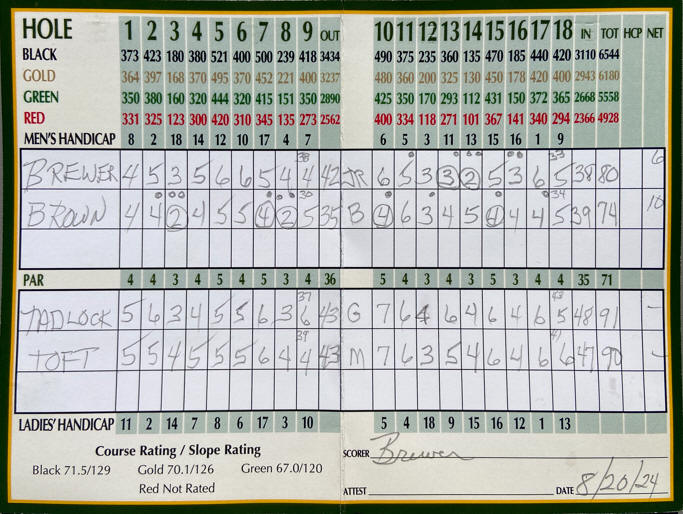 HOLE 1 2 3 4 5 6 7 8 9 OUT 10 11 12 13 14 15 16 17 18 IN TOT HCP NET
BLACK 373 423 180 380 521 400 500 239 418 3434 490 375 235 360 135 470 185 440 420 3110 6544
GOLD 364 397 168 370 495 370 452 221 400 3237 480 360 200 325 130 450 178 420 400 2943 6180
GREEN 350 380 160 320 444 320 415 151 350 2890 425 350 170 293 112 431 150 372 365 2668 5558
RED 331 325 123 300 420 310 345 135 273 2562 400 334 118 271 101 367 141 340 294 2366 4928
MEN'S HANDICAP 8 2 18 14 12 10 17 4 7 6 5 3 11 13 15 16 1 9
38 33 6
BREWER 4 5 3 5 6 6 5 4 4 42 JR 6 5 3 3 2 5 3 6 5 38 80
30 34 10
BROWN 4 4 2 4 5 5 4 2 5 35 B 4 6 3 4 5 4 4 4 5 39 74
PAR 4 4 3 4 5 4 5 3 4 36 5 4 3 4 3 5 3 4 4 35 71
37 43
TADLOCK 5 6 3 4 5 5 6 3 6 43 G 7 6 4 6 4 6 4 6 5 48 91 -
39 41
TOFT 5 5 4 5 5 5 6 4 4 43 M 7 6 3 5 4 6 4 6 6 47 90 -
LADIES' HANDICAP 11 2 14 7 8 6 17 3 10 5 4 18 9 15 16 12 1 13
Course Rating / Slope Rating
Black 71.5/129 Gold 70.1/126 Green 67.0/120
Red Not Rated
SCORER Brewer
ATTEST DATE 8/20/24